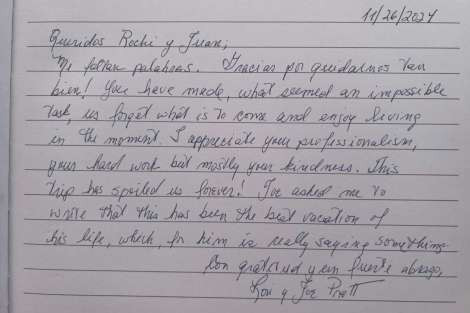 11/26/2024
Queridos Rochi y Juan,
Me faltan palabras. Gracias por guidarnos tan
bien! You have made, what seemed an impossible
task, us forget what is to come and enjoy living
in the moment. I appreciate your professionalism,
your hard work but mostly your kindness. This
trip has spoiled us forever! Joe asked me to
write that this has been the best vacation of
his life, which, for him is really saying something.
Con gratitud y un fuerte abrazo,
y Joe Pratt